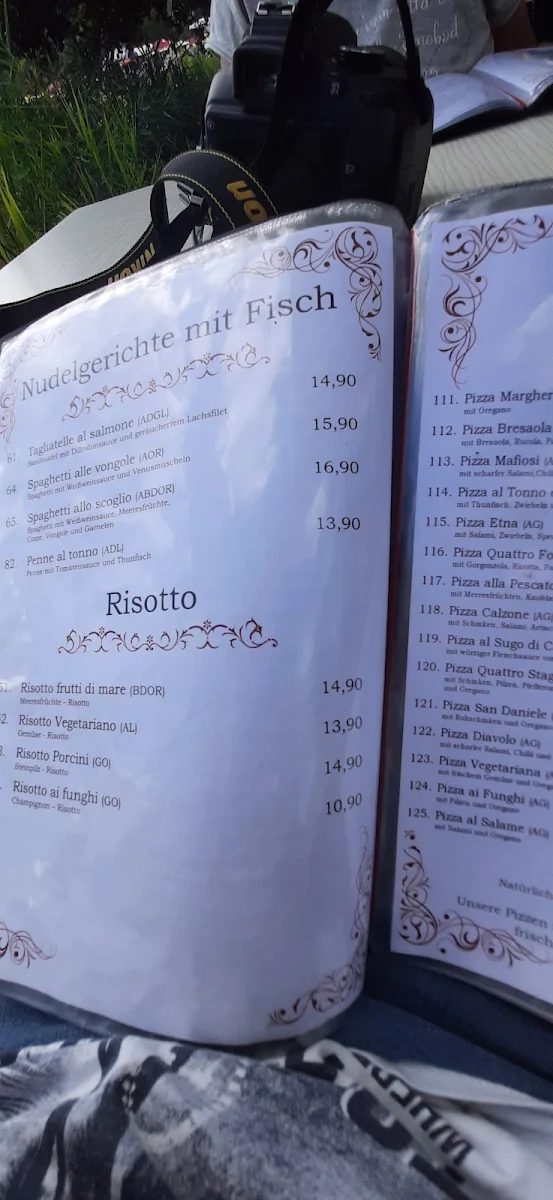 NIKON
on
Nudelgerichte mit Fisch
61. Tagliatelle al salmone (ADGL) 14,90
Bandnudel mit Dillrahmsauce und geräuchertem Lachsfilet
64. Spaghetti alle vongole (AOR) 15,90
Spaghetti mit Weißweinsauce und Venusmuscheln
65. Spaghetti allo scoglio (ABDOR) 16,90
Spaghetti mit Weißweinsauce, Meeresfrüchte,
Cozze, Vongole und Garnelen
82. Penne al tonno (ADL) 13,90
Penne mit Tomatensauce und Thunfisch
Risotto
51. Risotto frutti di mare (BDOR) 14,90
Meeresfrüchte - Risotto
52. Risotto Vegetariano (AL) 13,90
Gemüse - Risotto
3. Risotto Porcini (GO) 14,90
Steinpilz - Risotto
Risotto ai funghi (GO) 10,90
Champignon - Risotto
111. Pizza Margher
mit Oregano
112. Pizza Bresaola
mit Bresaola, Rucola, Pa
113. Pizza Mafiosi (A
mit scharfer Salami, Chili
114. Pizza al Tonno
mit Thunfisch, Zwiebeln
115. Pizza Etna (AG)
mit Salami, Zwiebeln, Spe
116. Pizza Quattro Fo
mit Gorgonzola, Ricotta, Pa
117. Pizza alla Pescato
mit Meeresfrüchten, Knobla
118. Pizza Calzone (AG)
mit Schinken, Salami, Artisc
119. Pizza al Sugo di C
mit würziger Fleischsauce
120. Pizza Quattro Stag
mit Schinken, Pilzen, Pfeffero
und Oregano
121. Pizza San Daniele
mit Rohschinken und Oregano
122. Pizza Diavolo (AG)
mit scharfer Salami, Chilli und
123. Pizza Vegetariana (A
mit frischem Gemüse und Oreg
124. Pizza ai Funghi (AG)
mit Pilzen und Oregano
125. Pizza al Salame (AG)
mit Salami und Oregano
Natürlich
Unsere Pizzen
frisch